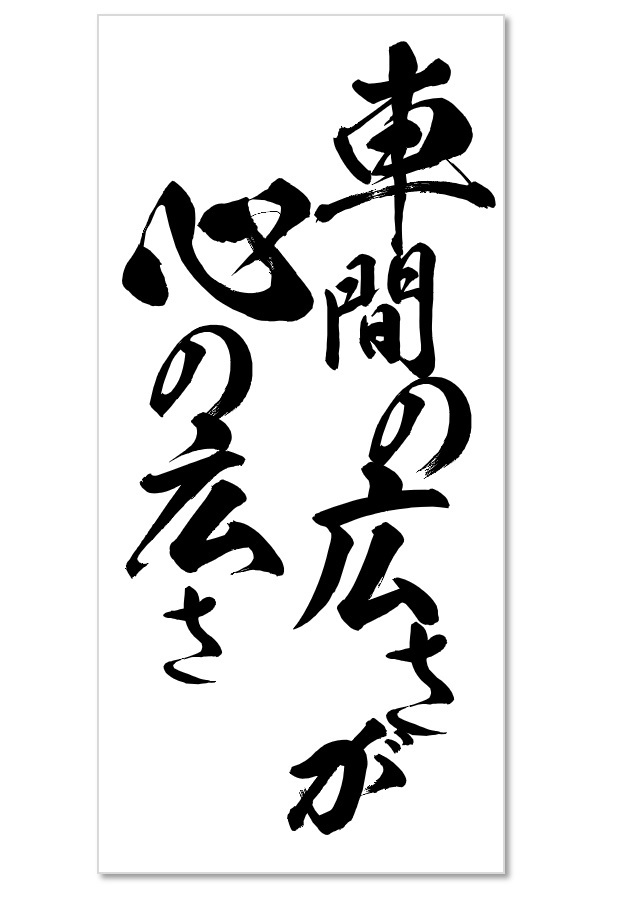 車間の広さが
心の広さ